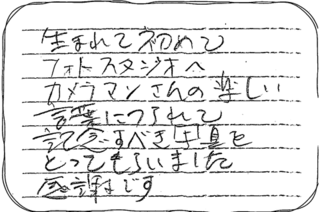 生まれて初めて
フォトスタジオへ
カメラマンさんの楽しい
言葉につられて
記念すべき写真を
とってもらいました
感謝です